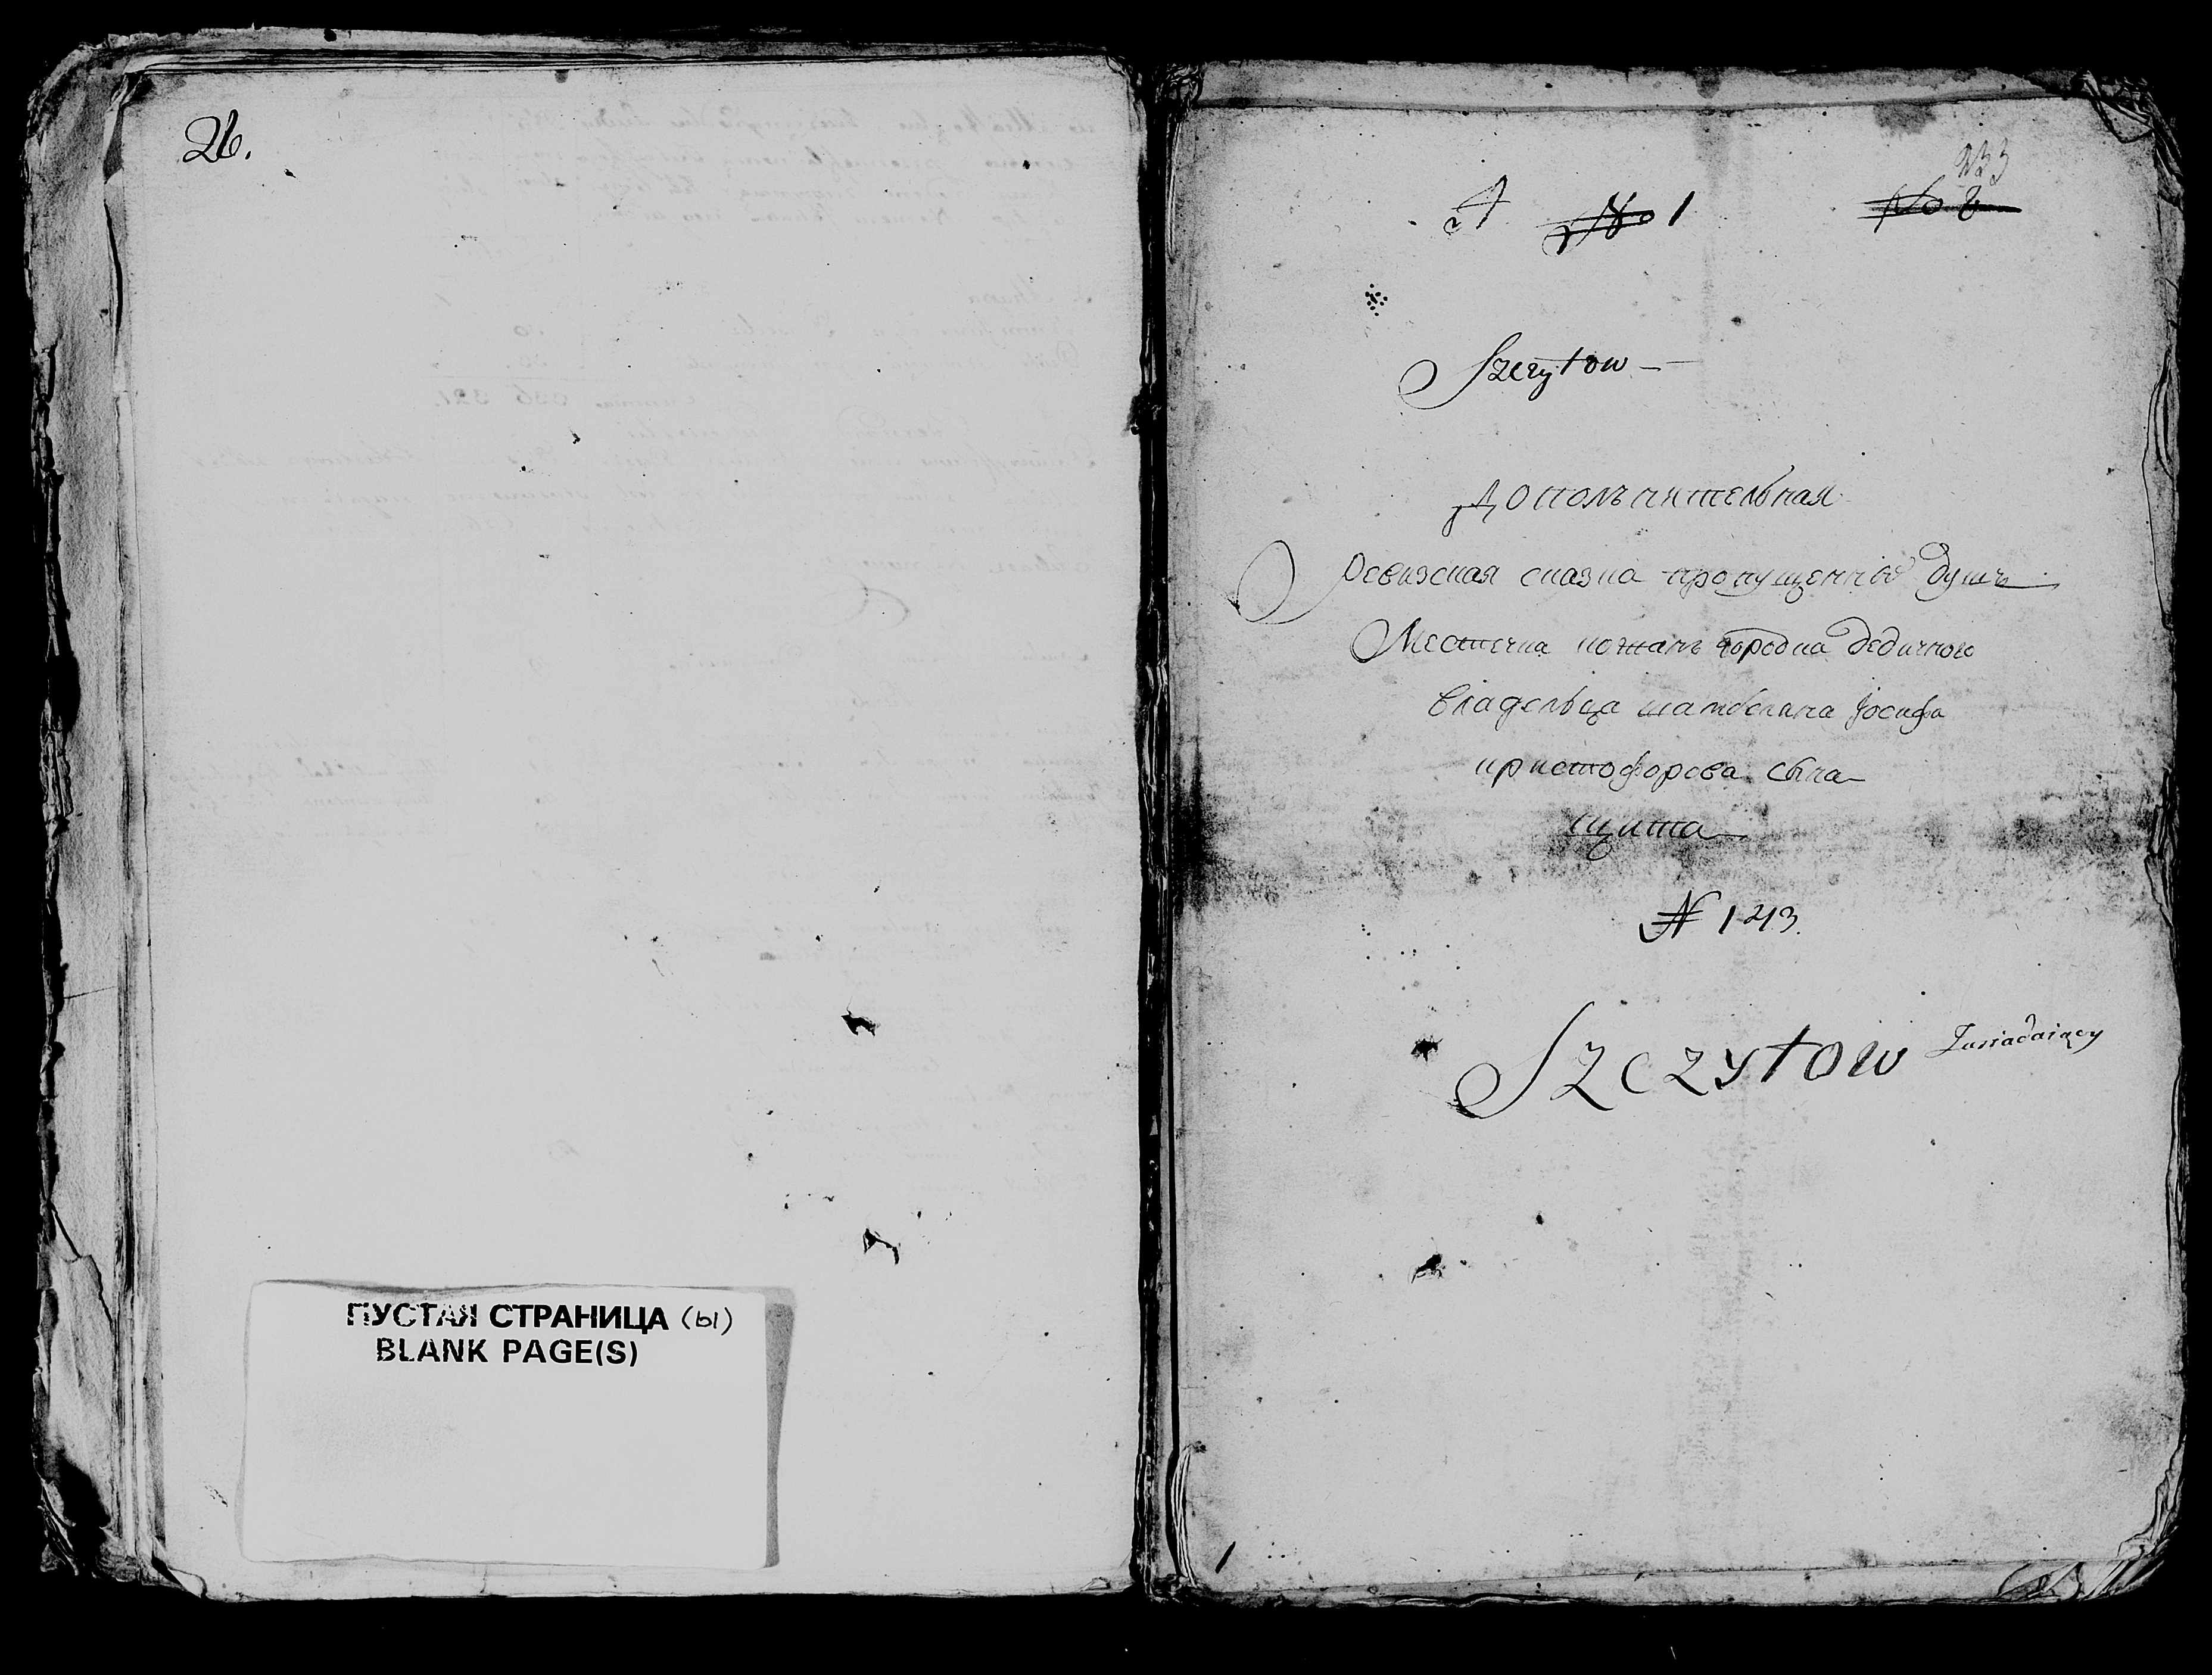 26.
ПУСТАЯ СТРАНИЦА (ы)
BLANK PAGE(S)
233
A № 1 № 2
Szczytow
Дополънительная
Ревизская сказка пропущенных душъ
Местечка кожанъ городка дедичного
владельца шамбелана Иосифа
кристофорова сына
щита
№ 1243.
Szczytow
1